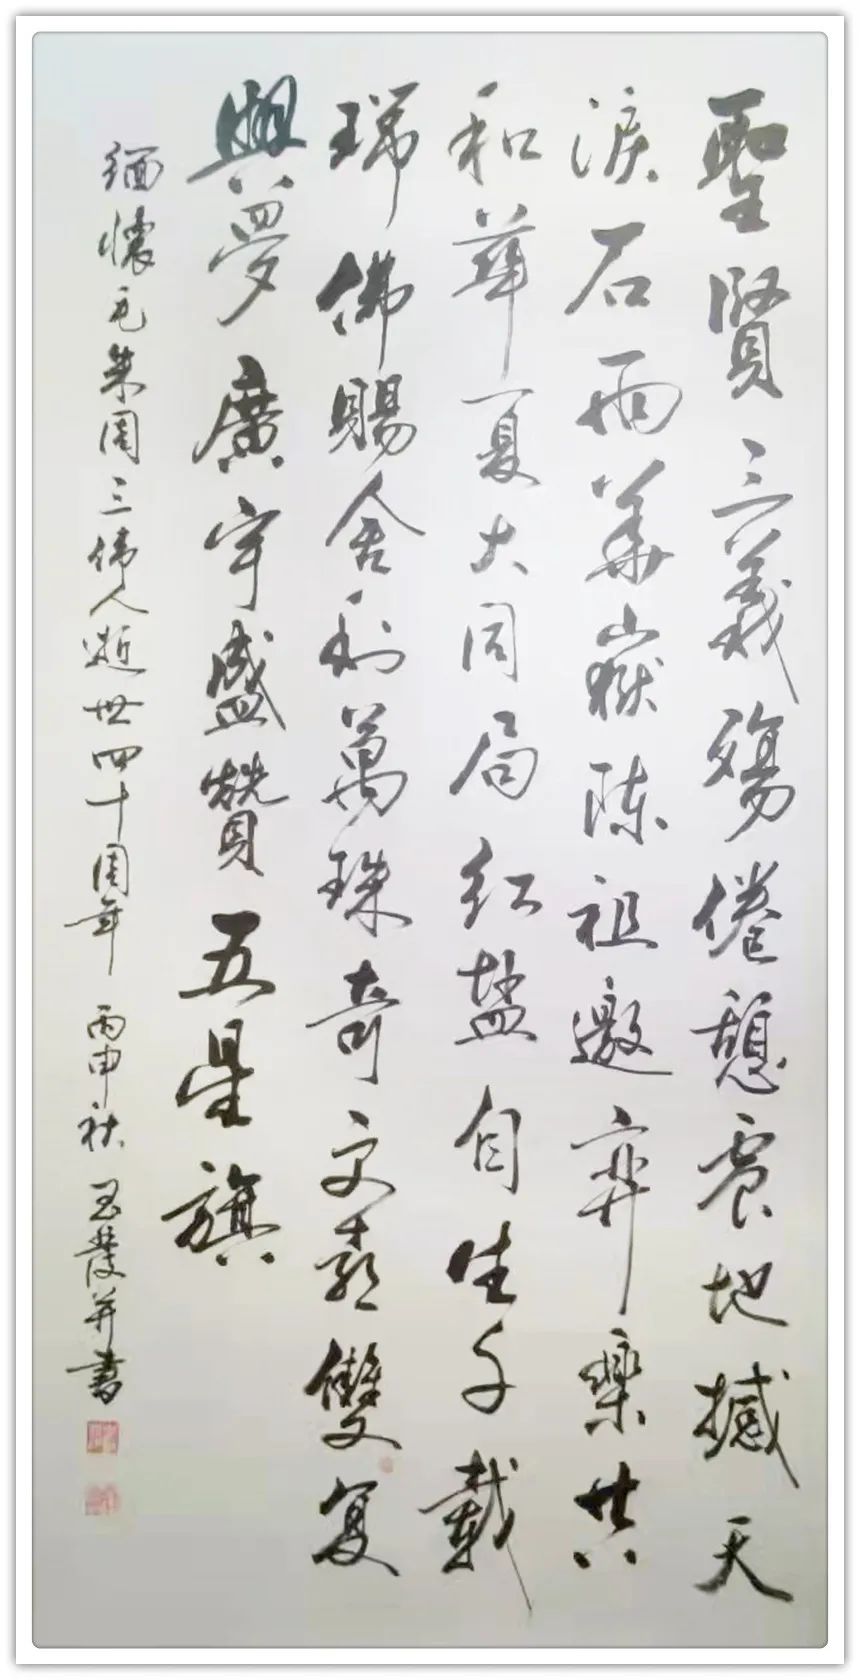 聖賢三義殤倦憩震地撼天
淚石雨華嶽陈祖邀弈樂共
和華夏大同局红盐自生千載
瑞佛賜舍利萬珠奇文彩雙复
興夢廣宇盛贊五星旗
缅懷毛朱周三偉人逝世四十周年 丙申秋 玉發并書